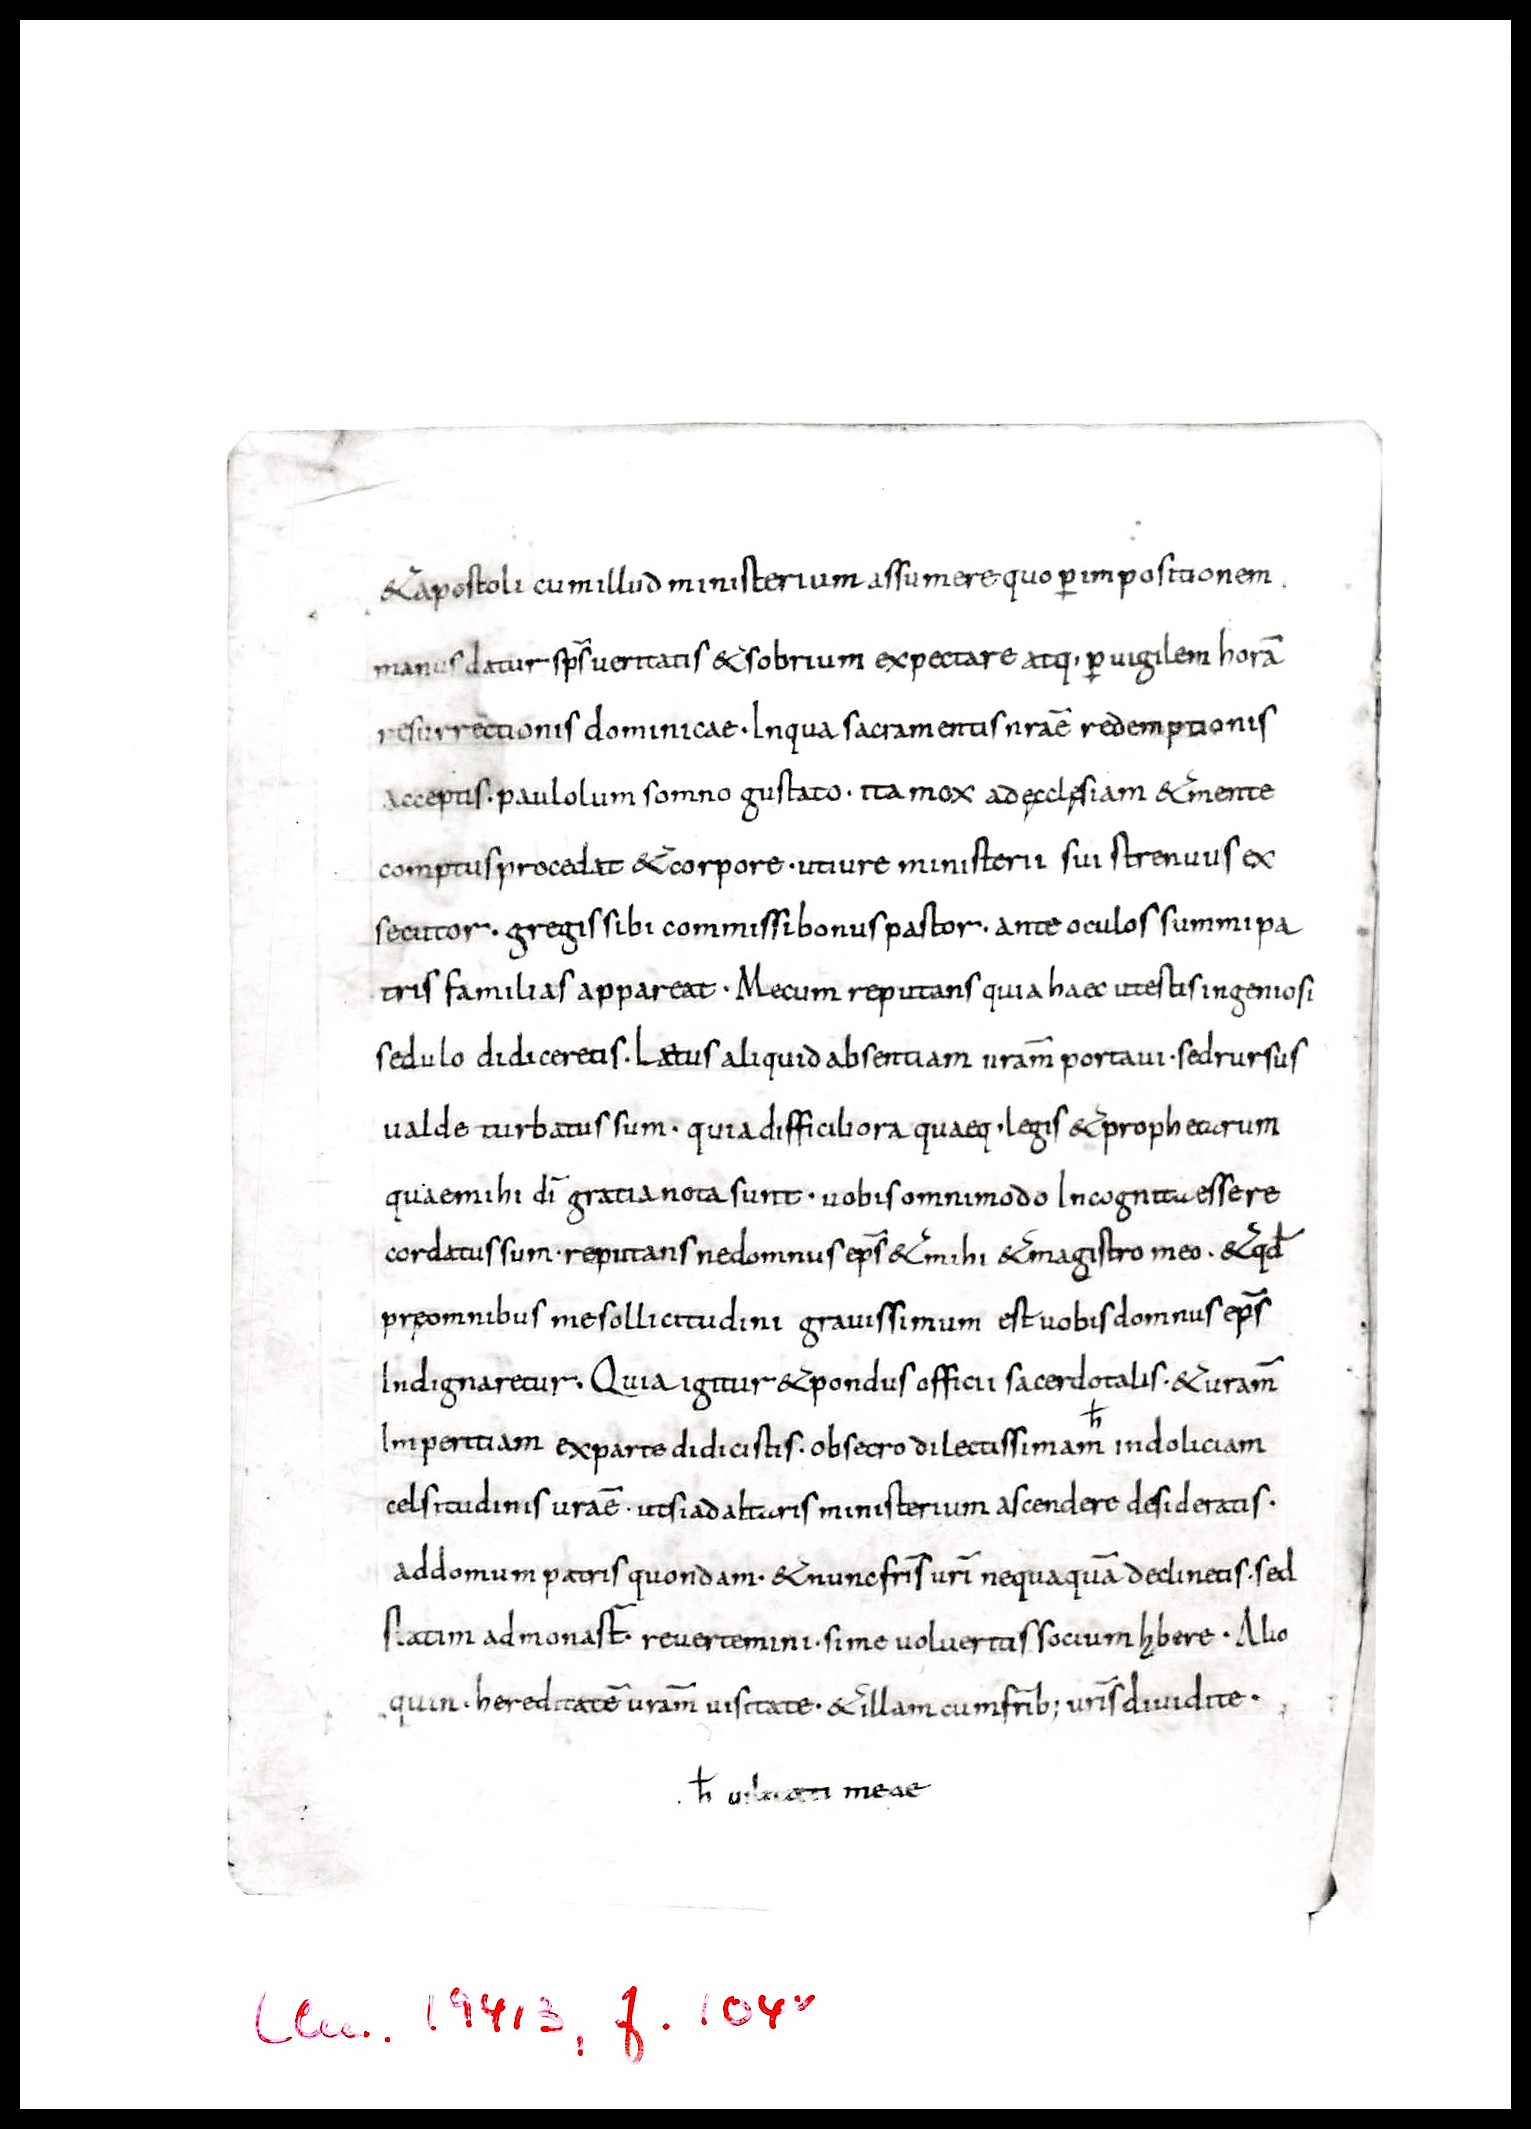 &apostoli cum illud ministerium assumere quo ꝑ impositionem
manus datur sp̄s ueritatis & sobrium expectare atq; ꝑ uigilem horā
resurrectionis dominicae · In qua sacramentis nrāe redemptionis
acceptis · paulolum somno gustato · ita mox ad ęcclęsiam & mente
comptus procedat & corpore · ut iure ministerii sui strenuus ex
secutor · gregis sibi commissi bonus pastor · ante oculos summi pa
tris familias appareat · Mecum reputans quia haec ut estis ingeniosi
sedulo diceretis · Laetus aliquid absentiam urām portaui · sed rursus
ualde turbatus sum · quia difficiliora quaeq; legis & prophetarum
quae mihi dī gratia nota sunt · uobis omnimodo Incognita esse re
cordatus sum · reputans ne domnus ep̄s & mihi & magistro meo · & qđ
pręomnibus me sollicitudini grauissimum est uobis domnus ep̄s
Indignaretur · Quia igitur & pondus officii sacerdotalis · & urām
Imperitiam ex parte didicistis · obsecro dilectissimam ħ indoliciam
celsitudinis urāe · ut si ad altaris ministerium ascendere desideratis ·
ad domum patris quondam · & nunc frīs urī nequaquā declinetis · sed
statim ad monast̄ · reuertemini · si me uolueritis socium hbere · Alio
quin · hereditatē urām uisitate · & illam cum frīb; urīs diuidite ·
ħ meae
Clm. 19413, f. 104ʳ